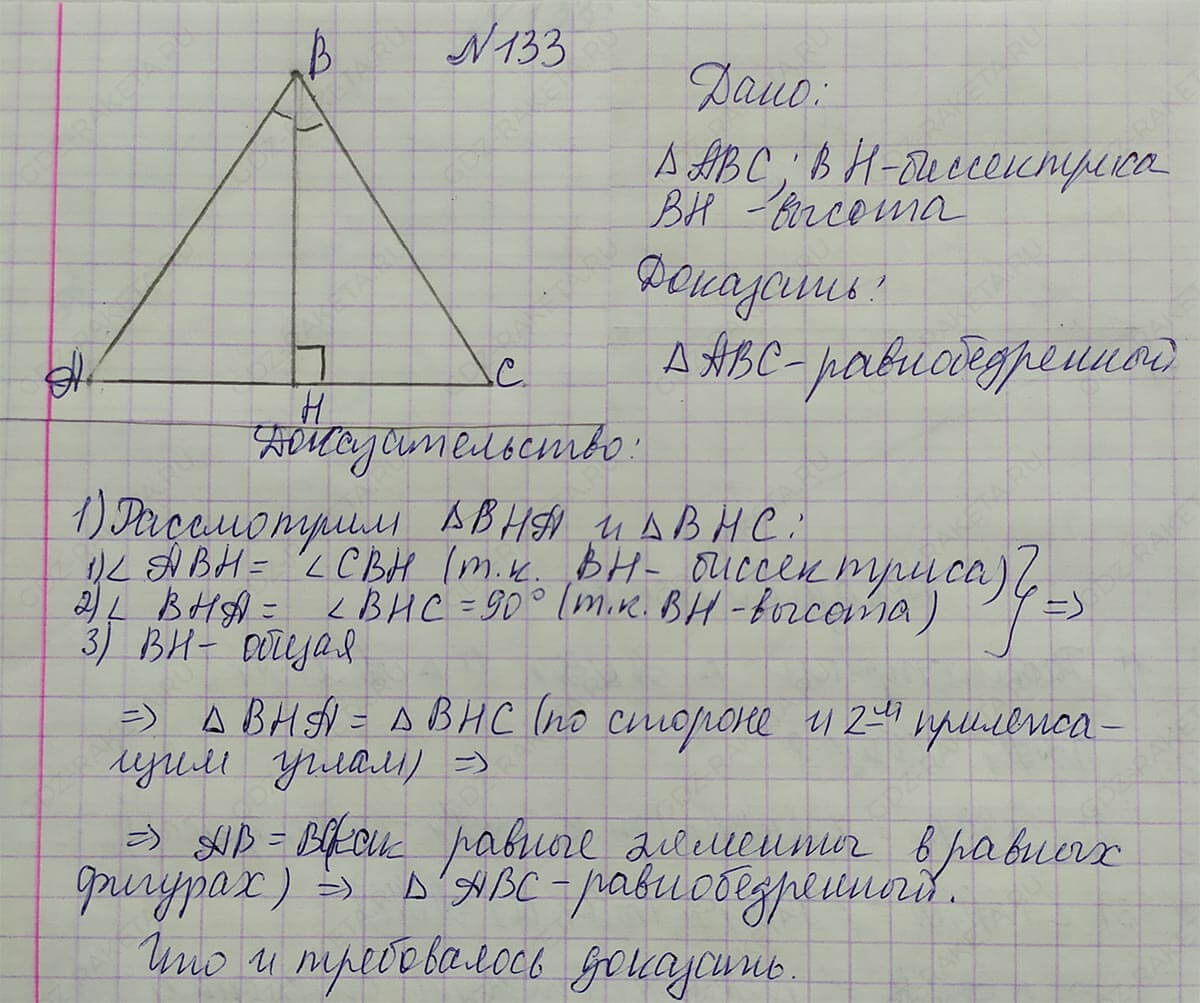 №133
B
A
H
C
Дано:
△ABC; BH-биссектриса
BH -высота
Доказать:
△ABC-равнобедренный
Доказательство:
1) Рассмотрим △BHA и △BHC:
1)∠ ABH= ∠CBH (т.к. BH- биссектриса)
2)∠ BHA= ∠BHC =90° (т.к. BH-высота) } =>
3) BH- общая
=> △BHA= △BHC (по стороне и 2-м прилежа-
щим углам) =>
=> AB=BC(как равные элементы в равных
фигурах) => △ ABC-равнобедренный.
Что и требовалось доказать.